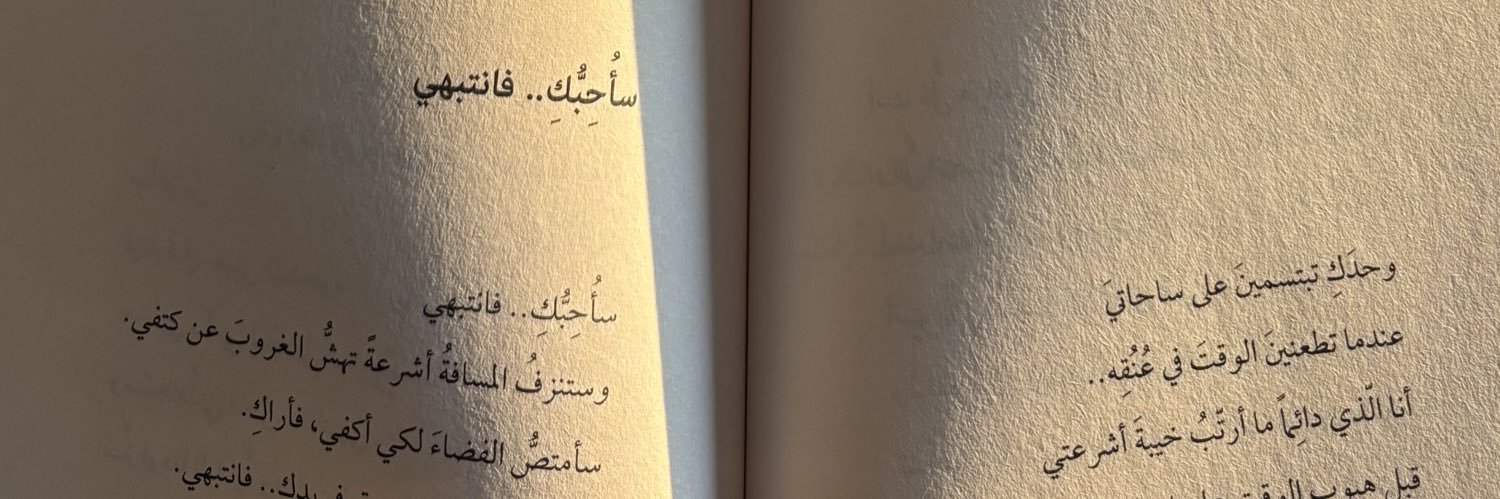 وحدَكِ تبتسمينَ على ساحاتيَ
عندما تطعنينَ الوقتَ في عُنُقِه..
أنا الّذي دائِماً ما أرتّبُ خيبةَ أشرعتي
قبل هبوب الوقت
سأُحِبُّكِ.. فانتبهي
سأُحِبُّكِ.. فانتبهي
وستنزفُ المسافةُ أشرعةً تهشُّ الغروبَ عن كتفي.
سأمتصُّ الفضاءَ لكي أكفي، فأراكِ.
يدكِ.. فانتبهي.